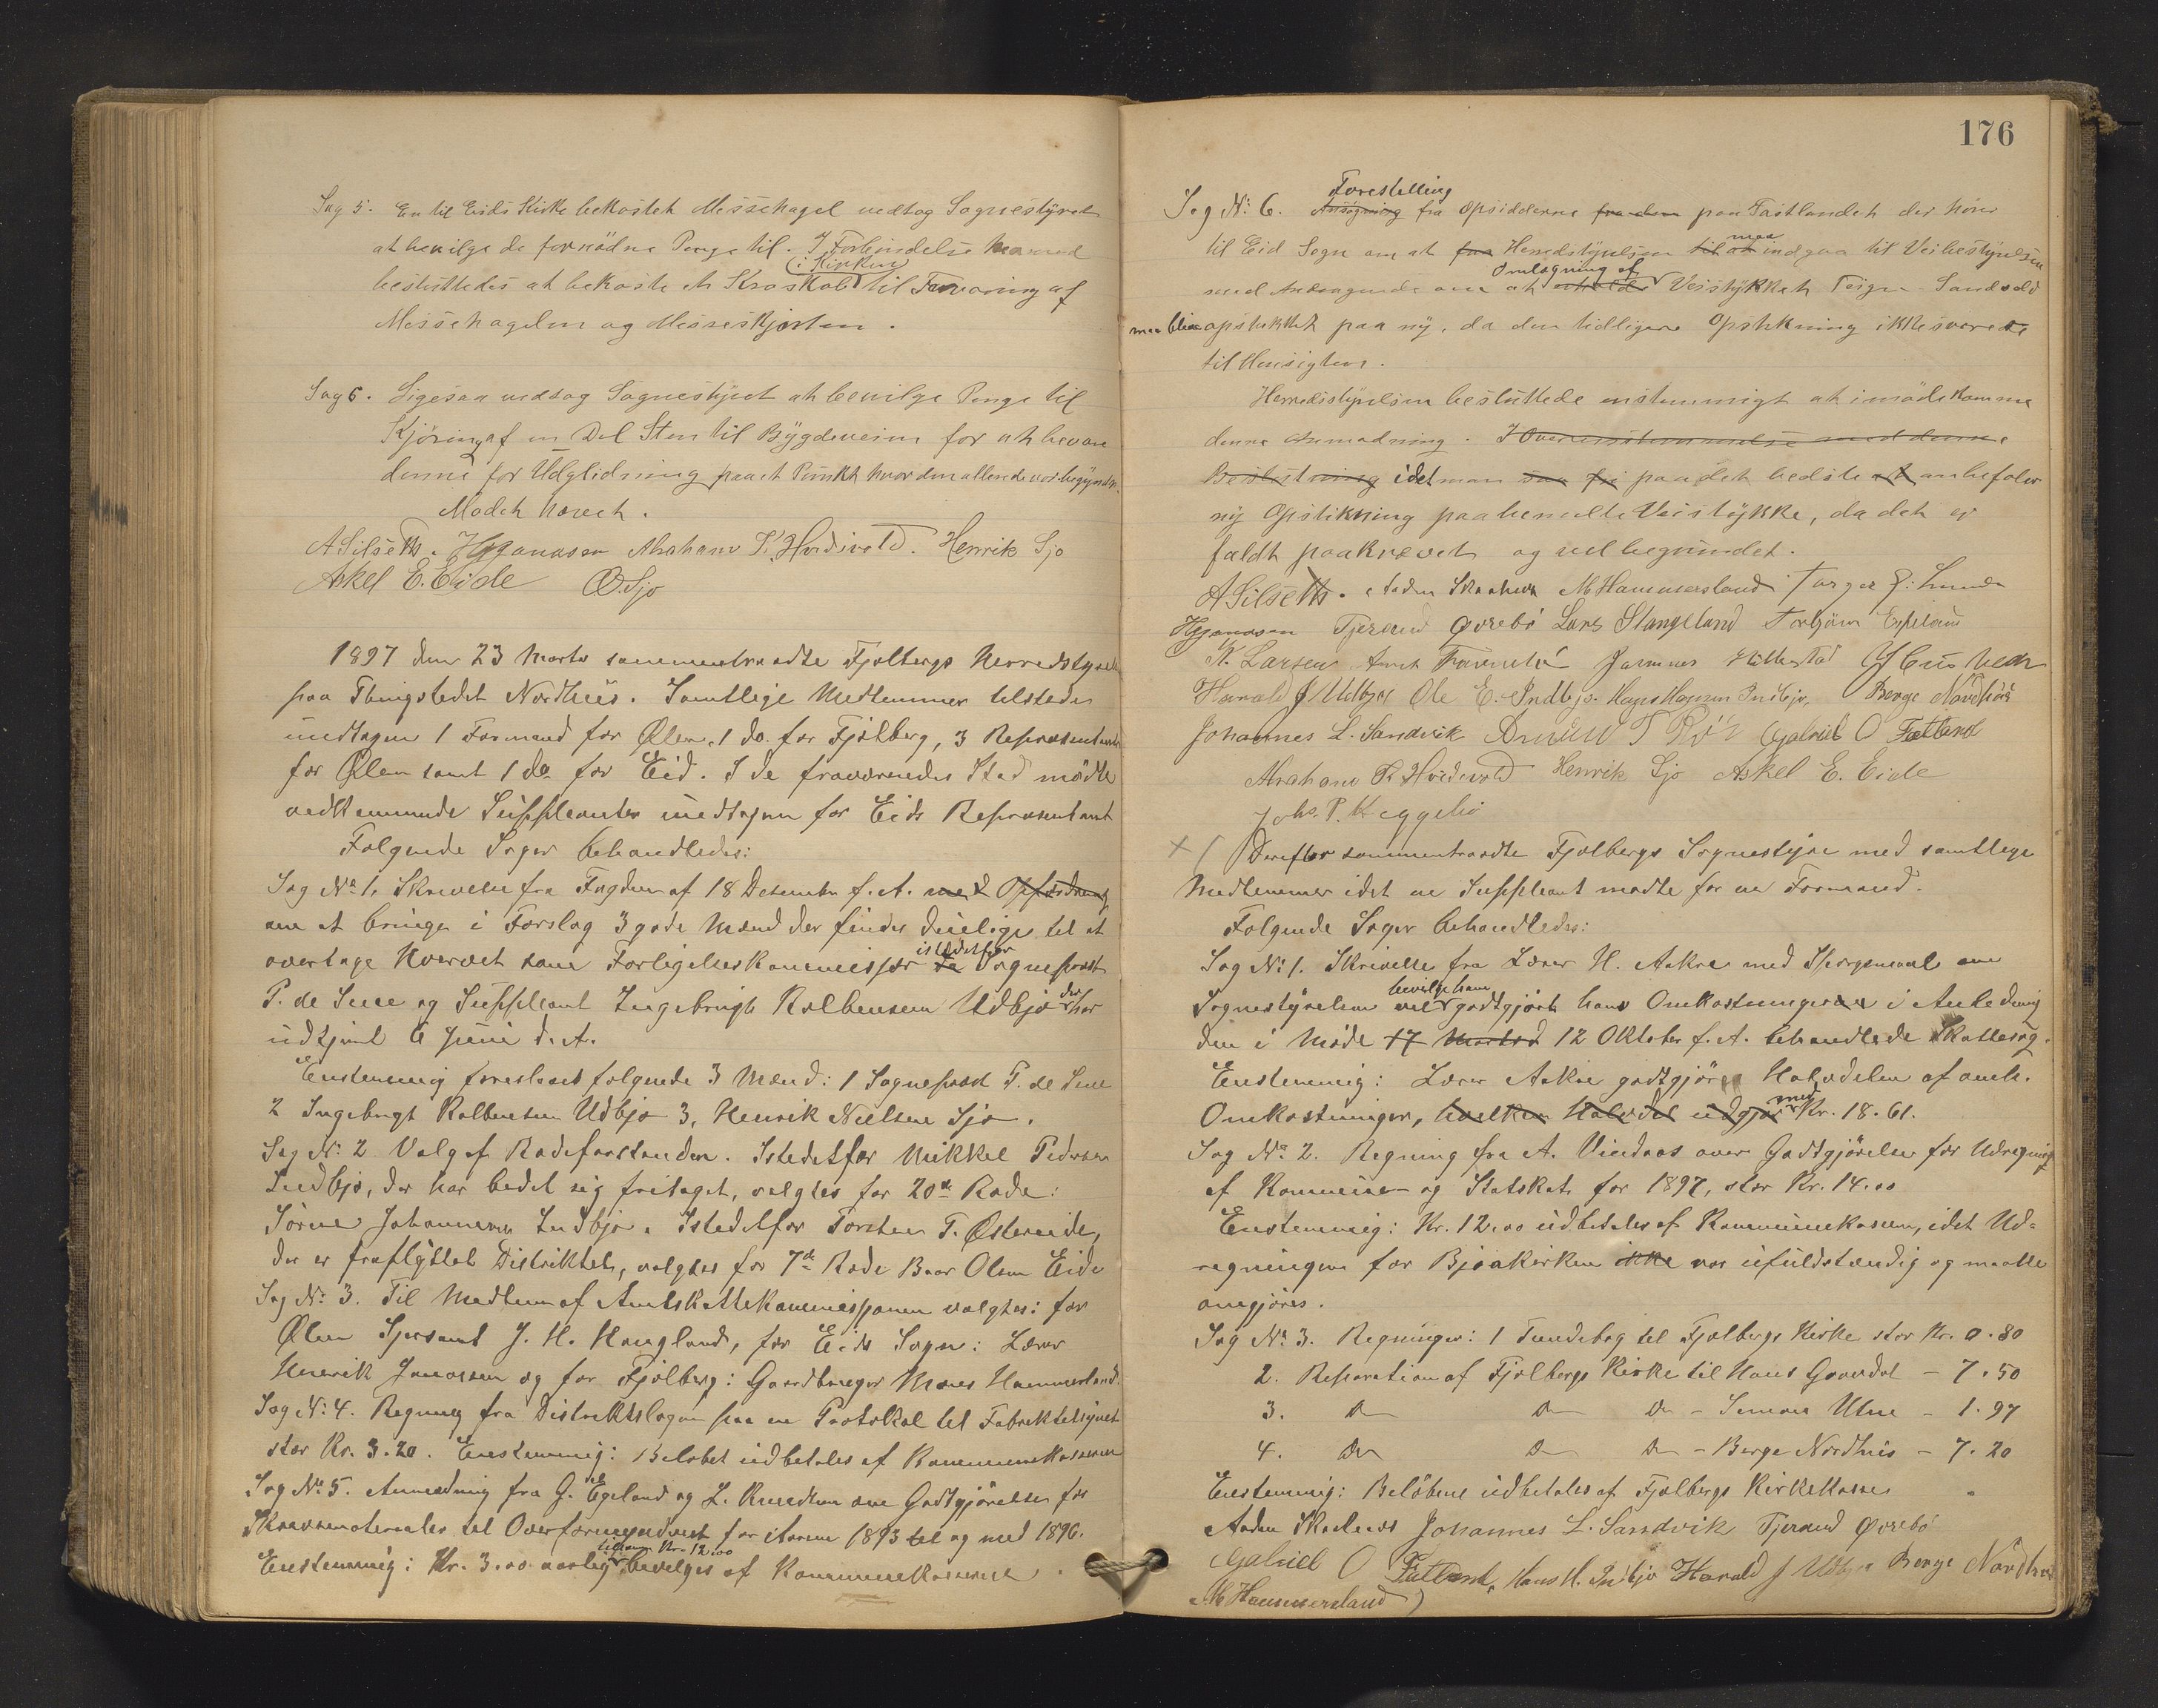 Sag 5. En til Eids Kirke bekostet Messehagel vedtog Sognestyret
at bevilge de fornödne Penge til. I Forbindelse hermed
i Kirken
besluttedes at bekoste et Kroskab til Forvaring af
Messehagelen og Messeskjorten.
Sag 6. Ligesaa vedtog Sognestyret at bevilge Penge til
Kjöring af en Del Sten til Bygdeveien for at bevare
denne for Udglidning paa et Punkt hvor den allerede var begyndt.
Mödet hævet.
A Silseth. H Jonassen Abraham K. Hordvold. Henrik Sjo
Askel E. Eide O. Sjo
1897 den 23 Marts sammentraadte Fjelbergs Herredstyrelse
paa Thingstedet Nordhus. Samtlige Medlemmer tilstede
undtagen 1 Formand for Ølen, 1 do. for Fjelberg, 3 Repræsentanter
for Ølen samt 1 do for Eid. I de fraværendes Sted mödte
vedkommende Suppleanter undtagen for Eids Repræsentant
Fölgende Sager behandledes:
Sag No 1. Skrivelse fra Fogden af 18 Desember f. A. med Opfordring
om at bringe i Forslag 3 gode Mænd der findes duelige til at
istedetfor
overtage Hvervet som Forligelseskommissær Sogneprest
der
P. de Seue og Suppleant Ingebrigt Kolbensen Udbjo har
udtjent 6 Juni d. A.
Enstemmig foreslaaes fölgende 3 Mænd: 1 Sogneprest P. de Seue
2 Ingebrigt Kolbensen Udbjo 3, Henrik Nielsen Sjo.
Sag No 2 Valg af Rodeforstander. Istedetfor Mikkel Pedersen
Indbjo, der har bedet sig fritaget, valgtes for 20de Rode:
Sören Johannesen Indbjo. Istedetfor Torsten T. Østereide,
der er fraflyttet Distriktet, valgtes for 7de Rode Baar Olsen Eide
Sag No 3. Til Medlem af Amtskattekommissionen valgtes: for
Ølen Sersjant J. H. Haugland, for Eids Sogn: Lærer
Henrik Jonassen og for Fjelberg: Gaardbruger Mons Hammersland.
Sag No 4. Regning fra Distriktslægen paa en Protokol til Fabriktilsynet
stor Kr. 3.20. Enstemmig: Belöbet udbetales af Kommunekassen
Sag No 5. Anmodning fra G. Egeland og L. Knudsen om Godtgjörelse for
Skrivematerialer til Overformynderiet for Aarene 1893 til og med 1896.
tilsam. Kr. 12.00
Enstemmig: Kr. 3.00 aarlig bevilges af Kommunekassen.
176
Forestilling
Sag No 6. Ansögning fra Opsidderne fra dem paa Fastlandet der hörer
maa
til Eid Sogn om at faa Herredstyrelsen til at indgaa til Veibestyrelsen
Omlægning af
med Andragende om at Veistykket Teigen - Sandvold
maa blive opstukket paa ny, da den tidligere Opstikning ikke svarede
til Hensigten.
Herredsstyrelsen besluttede enstemmigt at imödekomme
denne Anmodning. I Overensstemmelse med denne
Beslutning idet man paa det bedste anbefaler
ny Opstikning paa bemeldte Veistykke, da det er
faldt paakrævet og vel begrundet.
A Silseth. Aadne Skaaluren M Hammersland Torger J. Lunde
H Jonassen Tjerand Øvrebö Lars Stangeland Torbjörn Espeland
K. Larsen
Harald J Udbjo Ole E. Indbjo. Hans Hansen Indbjo, Berge Nordhus
Johannes L. Sandvik Gabriel O Fatland
Abraham K. Hordvold Henrik Sjo Askel E. Eide
Johs. P. Heggebö
+ ( Derefter sammentraadte Fjelbergs Sognestyre med samtlige
Medlemmer idet en Suppleant mödte for en Formand.
Fölgende Sager behandledes:
Sag No 1. Skrivelse fra Lærer H. Aakre med Spörgsmaal om
bevilge ham
Sognestyrelsen vil godtgjört hans Omkostninger i Anledning
den i Möde 17 Marts 12 Oktober f. A. behandlede Skattesag.
Enstemmig: Lærer Aakre godtgjöres Halvdelen af omh.
med
Omkostninger, hvilken Halvdel udgjör Kr. 18.61.
Sag No 2. Regning fra A. Vindaas over Godtgjörelse for Udregning
af Kommune- og Statskat for 1897, stor Kr. 14.00
Enstemmig: Kr. 12.00 udbetales af Kommunekassen, idet Ud-
regningen for Bjoakirken ikke var ufuldstændig og maatte
omgjöres.
Sag No 3. Regninger: 1 Tiendebog til Fjelbergs Kirke stor Kr. 0.80
2. Reparation af Fjelbergs Kirke til Hans Gaardal - 7.50
3. Do Do Do - Utne - 1.97
4. Do Do Do - Berge Nordhus - 7.20
Enstemmig: Belöbene udbetales af Fjelbergs Kirkekasse
Aadne Skaaluren Johannes L. Sandvik Tjerand Øvrebö
Gabriel O Fatland, Hans H. Indbjo Harald J Udbjo Berge Nordhus
M Hammersland )